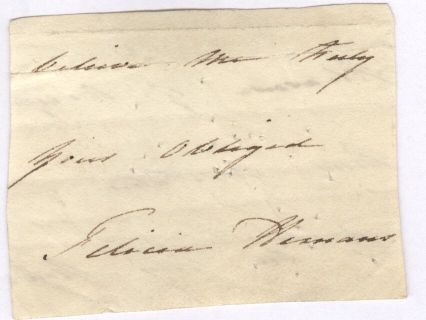 believe me Truly
yours obliged
Felicia Hemans